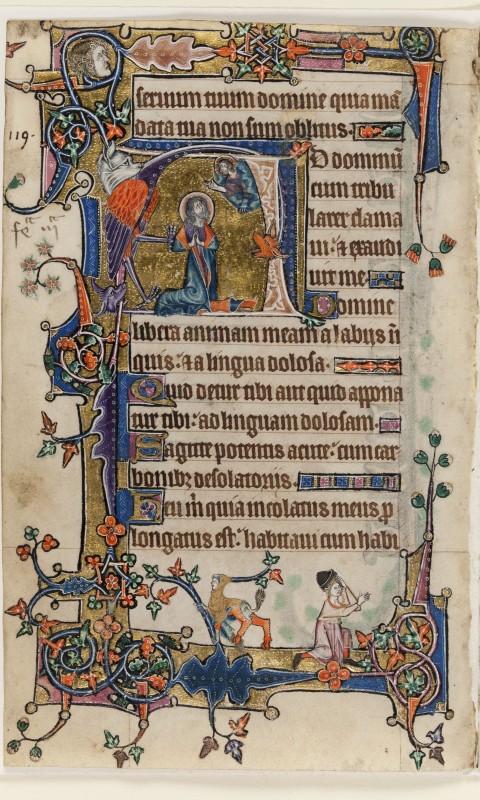 seruum tuum domine quia ma
data tua non sum oblitus
119.
Ad dominū
cum tribu
larer clama
ui: et exaudi
uit me
fe iii
Domine
libera animam meam a labijs in
quis: et a lingua dolosa.
Quid detur tibi aut quid appona
tur tibi: ad linguam dolosam.
Sagitte potentis acute: cum car
bonibꝫ desolatorijs.
Heu m̄ quia incolatus meus p
longatus est: habitaui cum habi